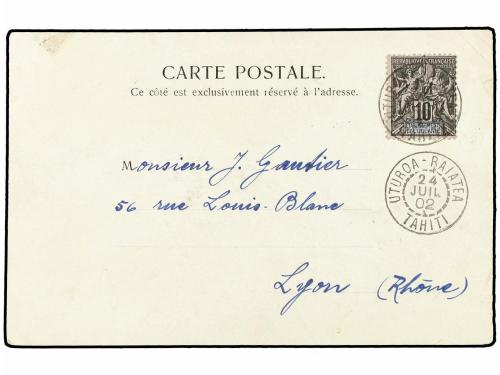 CARTE POSTALE.
Ce côté est exclusivement réservé à l'adresse.
RÉPUBLIQUE FRANÇAISE
10
UTUROA-RAIATEA
24
JUIL
02
TAHITI
Monsieur J. Gautier
56 rue Louis-Blanc
Lyon (Rhône)